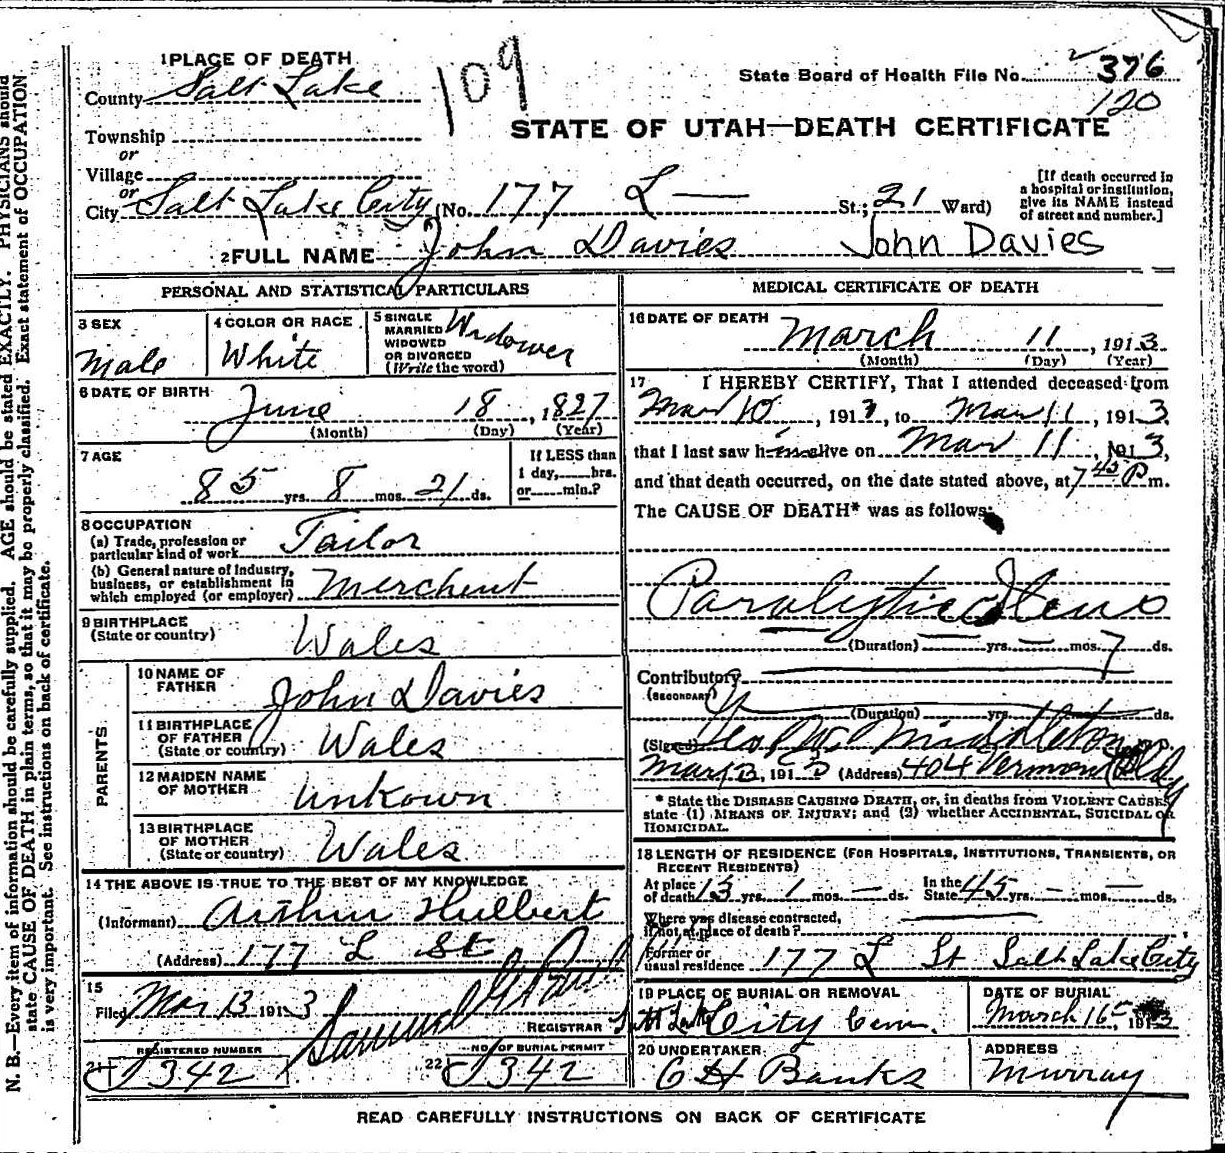 1 PLACE OF DEATH
County Salt Lake
109
State Board of Health File No. 376
120
Township
or
Village
or
STATE OF UTAH—DEATH CERTIFICATE
City Salt Lake City (No. 177 L — St.; 21 Ward)
[If death occurred in
a hospital or institution,
give its NAME instead
of street and number.]
2 FULL NAME John Davies John Davies
PERSONAL AND STATISTICAL PARTICULARS
3 SEX
Male
4 COLOR OR RACE
White
5 SINGLE
MARRIED
WIDOWED
OR DIVORCED
(Write the word)
Widower
6 DATE OF BIRTH
June 18, 1827
(Month) (Day) (Year)
7 AGE
85 yrs. 8 mos. 21 ds.
If LESS than
1 day, hrs.
or min.?
8 OCCUPATION
(a) Trade, profession or
particular kind of work Tailor
(b) General nature of Industry,
business, or establishment in
which employed (or employer) Merchent
9 BIRTHPLACE
(State or country) Wales
PARENTS
10 NAME OF
FATHER John Davies
11 BIRTHPLACE
OF FATHER
(State or country) Wales
12 MAIDEN NAME
OF MOTHER Unkown
13 BIRTHPLACE
OF MOTHER
(State or country) Wales
14 THE ABOVE IS TRUE TO THE BEST OF MY KNOWLEDGE
(Informant) Arthur Hulbert
(Address) 177 L St
15
Filed Mar 13 1913 Samuel G Paul
REGISTRAR
REGISTERED NUMBER
21 1342
NO. OF BURIAL PERMIT
22 1342
MEDICAL CERTIFICATE OF DEATH
16 DATE OF DEATH
March 11, 1913
(Month) (Day) (Year)
17 I HEREBY CERTIFY, That I attended deceased from
Mar 10, 1913, to Mar 11, 1913,
that I last saw him alive on Mar 11, 1913,
and that death occurred, on the date stated above, at 7 45 P m.
The CAUSE OF DEATH* was as follows:
Paralytic Ileus
(Duration) — yrs. — mos. 7 ds.
Contributory
(SECONDARY)
(Duration) yrs. ds.
(Signed) Geo W Middleton
Mar 13, 1913 (Address) 404 Vermont Bldg
* State the DISEASE CAUSING DEATH, or, in deaths from VIOLENT CAUSES,
state (1) MEANS OF INJURY; and (2) whether ACCIDENTAL, SUICIDAL OR
HOMICIDAL.
18 LENGTH OF RESIDENCE (FOR HOSPITALS, INSTITUTIONS, TRANSIENTS, OR
RECENT RESIDENTS)
At place
of death 13 yrs. 1 mos. — ds. In the
State 45 yrs. — mos. — ds.
Where was disease contracted,
if not at place of death?
Former or
usual residence 177 L St Salt Lake City
19 PLACE OF BURIAL OR REMOVAL
Salt Lake City Cem.
DATE OF BURIAL
March 16, 1913
20 UNDERTAKER
Banks
ADDRESS
Murray
READ CAREFULLY INSTRUCTIONS ON BACK OF CERTIFICATE
N. B.—Every item of information should be carefully supplied. AGE should be stated EXACTLY. PHYSICIANS should
state CAUSE OF DEATH in plain terms, so that it may be properly classified. Exact statement of OCCUPATION
is very important. See instructions on back of certificate.